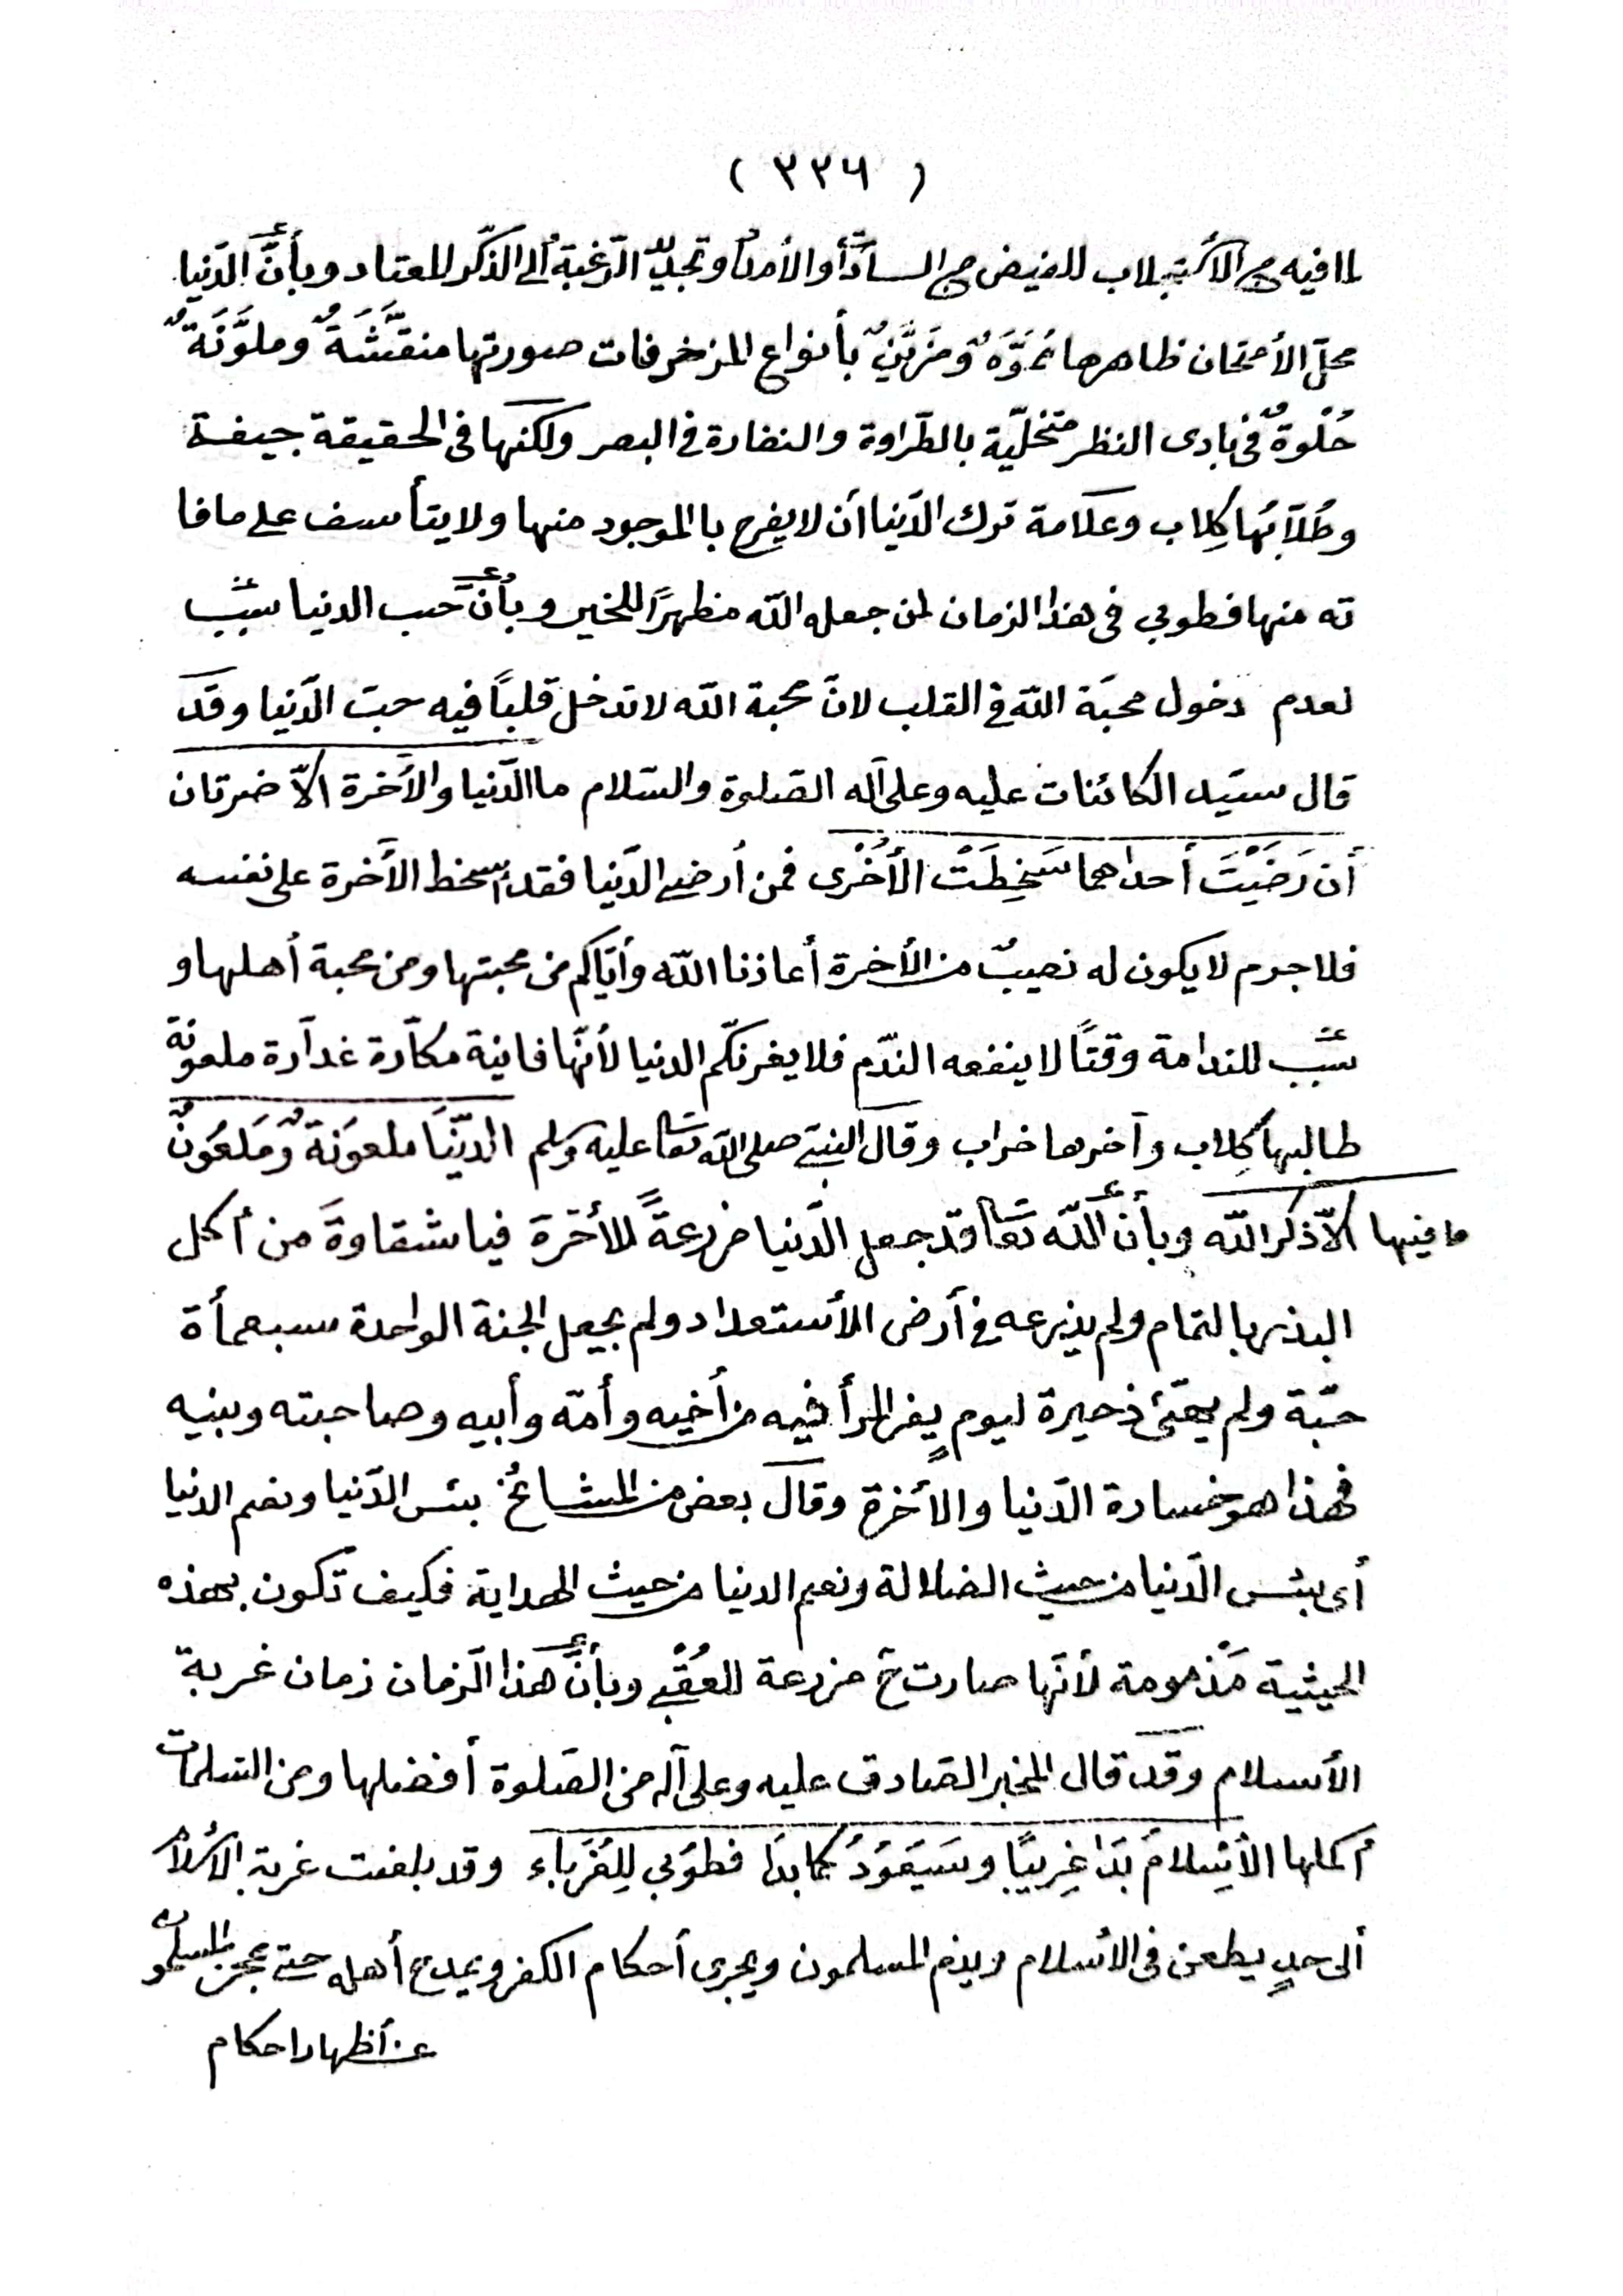 ( ٣٣٦ )
لما فيه من الأستجلاب للفيض من السادات والأمداد وتجديد الرّغبة ألى الذّكر المعتاد وبأنَّ الدّنيا
محلّ الأمتحان ظاهرها مُمَوَّهٌ ومُزَيَّنٌ بأنواع المزخرفات صورتها منقَّشَةٌ وملوَّنَةٌ
حُلْوةٌ فى بادى النظر متحليّة بالطّراوة والنضارة فى البصر ولكنها فى الحقيقة جيفة
وطُلّابُها كِلاب وعلامة ترك الدّنيا أن لا يفرح بالموجود منها ولا يتأسف على ما فا
ته منها فطوبى فى هذا الزمان لمن جعله الله مظهرًا للخير وبأنَّ حب الدنيا سبب
لعدم دخول محبّة الله فى القلب لانّ محبة الله لا تدخل قلبًا فيه حبّ الدّنيا وقد
قال سيّد الكائنات عليه وعلى آله الصّلوة والسّلام ما الدّنيا والآخرة الّا ضرتان
أن رَضِيَتْ أحداهما سَخِطَتْ الأُخْرى فمن أرضى الدّنيا فقد أسخط الآخرة على نفسه
فلا جرم لا يكون له نصيبٌ من الأخرة أعاذنا الله وأيّاكم من محبتها ومن محبة أهلها و
سبب للندامة وقتًا لا ينفعه النّدم فلا يغرنكّم الدنيا لأنّها فانية مكّارة غدّارة ملعونة
طالبها كِلاب وآخرها خراب وقال النبىّ صلى الله تعا عليه وسلم الدّنْيَا ملعُونَةٌ وَمَلعُونٌ
ما فيها الّا ذكر الله وبأنَّ الله تعا قد جعل الدّنيا مزرعةً للأخرة فيا شقاوةَ من أكل
البذر بالتمام ولم يذرعه فى أرض الأستعداد ولم يجعل الحبة الواحدة سبعمأة
حبّة ولم يهيّئ ذخيرة ليومٍ يفر المرأ فيه من أخيه وأمّه وأبيه وصاحبته وبنيه
فهذا هو خسارة الدّنيا والأخرة وقال بعض من المشائخ بئس الدّنيا ونعم الدنيا
أى بئس الدّنيا من حيث الضلالة ونعم الدنيا من حيث الهداية فكيف تكون بهذه
الحيثية مَذْمومة لأنّها صارت ح مزرعة للعُقْبى وبأنَّ هذا الزّمان زمان غربة
الأسلام وقد قال المخبر الصّادق عليه وعلى آله من الصّلوة أفضلها ومن التسلمات
أكملها الأسْلامُ بَدَا غَرِيبًا وسَيَعُودُ كما بدَا فطوبى لِلغُرَباء وقد بلغت غربة الاسلام
ألى حدٍ يطعن فى الأسلام ويذم المسلمون ويجرى أحكام الكفر ويمدح أهله حتى عجز المسلمون
عن أظهار احكام